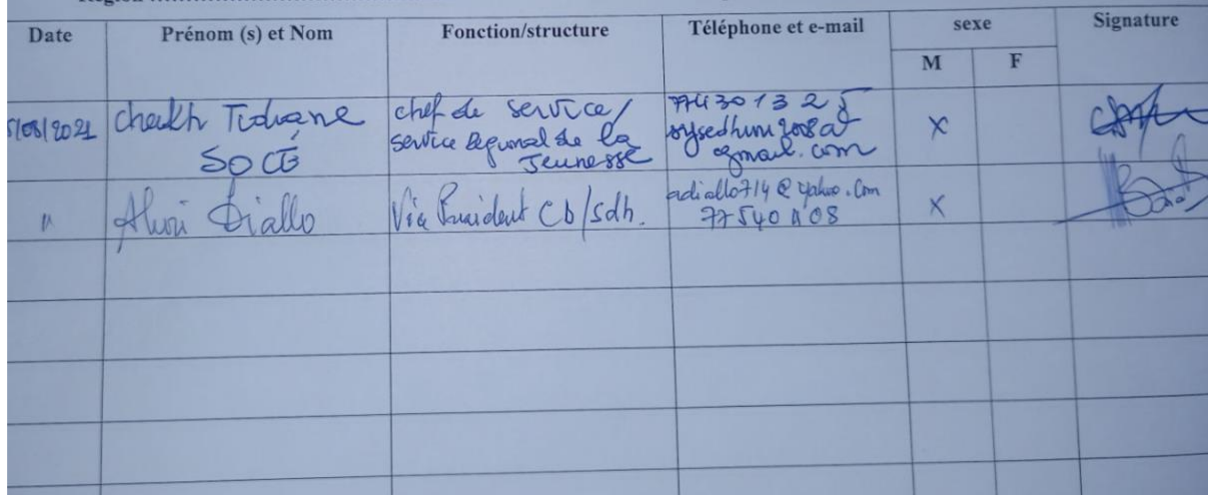 Date Prénom (s) et Nom Fonction/structure Téléphone et e-mail sexe Signature
M F
/08/2021 cheikh Tidiane SOCÉ chef de service/ service Regional de la Jeunesse 774301325 gmail.com X
" Diallo Vice President Cb/Sdh. adiallo714@yahoo.Com 77540 08 X